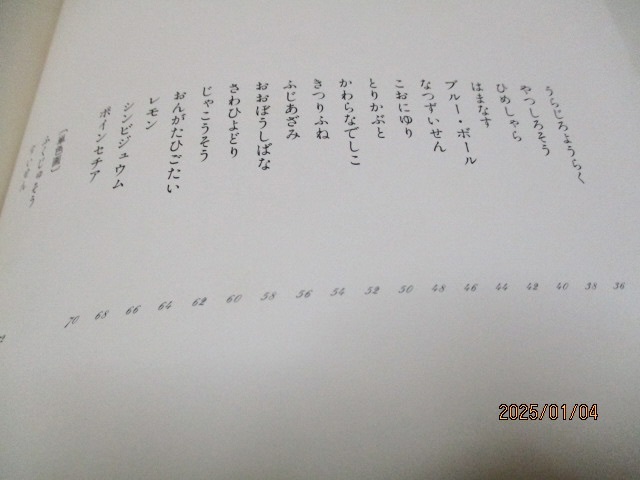 うらじろようらく 36
やつしろそう 38
ひめしゃら 40
はまなす 42
ブルー・ボール 44
なつずいせん 46
こおにゆり 48
とりかぶと 50
かわらなでしこ 52
きつりふね 54
ふじあざみ 56
おおぼうしばな 58
さわひよどり 60
じゃこうそう 62
おんがたひごたい 64
レモン 66
シンビジュウム 68
ポインセチア 70
2025/01/04